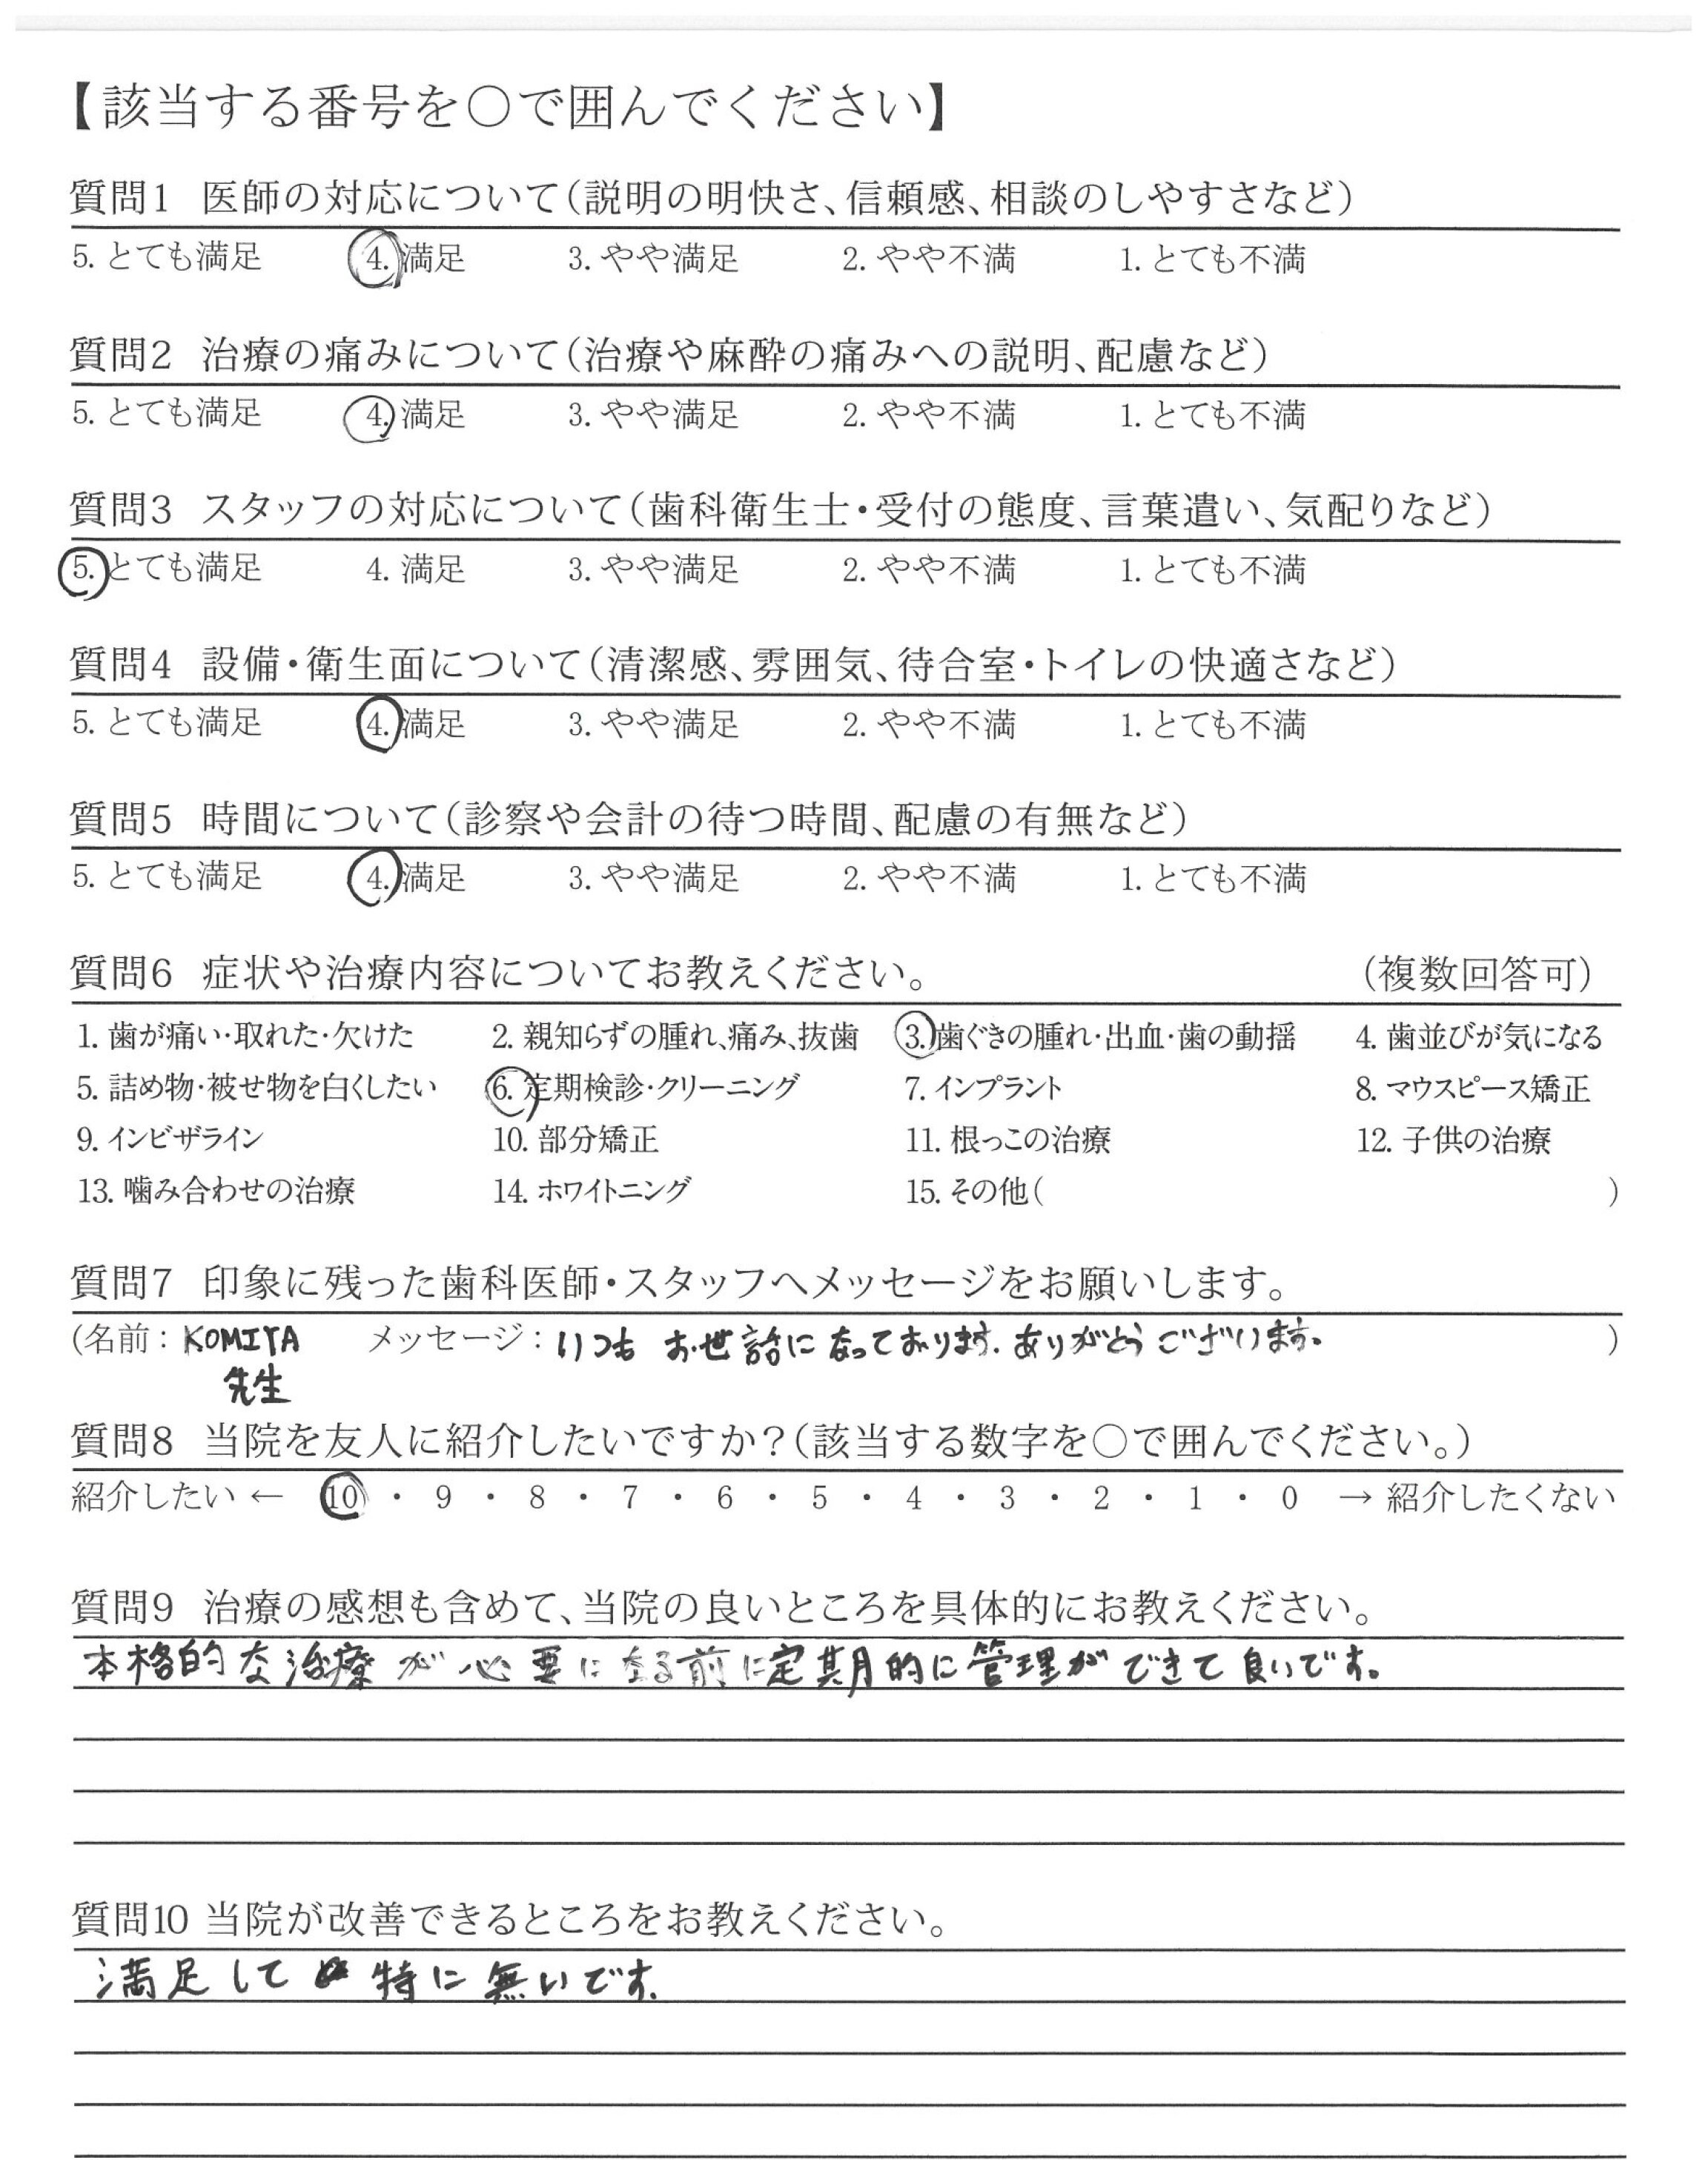 【該当する番号を○で囲んでください】
質問1 医師の対応について(説明の明快さ、信頼感、相談のしやすさなど)
5. とても満足 4. 満足 3. やや満足 2. やや不満 1. とても不満
質問2 治療の痛みについて(治療や麻酔の痛みへの説明、配慮など)
5. とても満足 4. 満足 3. やや満足 2. やや不満 1. とても不満
質問3 スタッフの対応について(歯科衛生士・受付の態度、言葉遣い、気配りなど)
5. とても満足 4. 満足 3. やや満足 2. やや不満 1. とても不満
質問4 設備・衛生面について(清潔感、雰囲気、待合室・トイレの快適さなど)
5. とても満足 4. 満足 3. やや満足 2. やや不満 1. とても不満
質問5 時間について(診察や会計の待つ時間、配慮の有無など)
5. とても満足 4. 満足 3. やや満足 2. やや不満 1. とても不満
質問6 症状や治療内容についてお教えください。 (複数回答可)
1. 歯が痛い・取れた・欠けた 2. 親知らずの腫れ、痛み、抜歯 3. 歯ぐきの腫れ・出血・歯の動揺 4. 歯並びが気になる
5. 詰め物・被せ物を白くしたい 6. 定期検診・クリーニング 7. インプラント 8. マウスピース矯正
9. インビザライン 10. 部分矯正 11. 根っこの治療 12. 子供の治療
13. 噛み合わせの治療 14. ホワイトニング 15. その他( )
質問7 印象に残った歯科医師・スタッフへメッセージをお願いします。
(名前：KOMIYA メッセージ：いつも お世話に なっております. ありがとうございます。 )
先生
質問8 当院を友人に紹介したいですか？(該当する数字を○で囲んでください。)
紹介したい ← 10 ・ 9 ・ 8 ・ 7 ・ 6 ・ 5 ・ 4 ・ 3 ・ 2 ・ 1 ・ 0 → 紹介したくない
質問9 治療の感想も含めて、当院の良いところを具体的にお教えください。
本格的な治療が必要になる前に定期的に管理ができて良いです。
質問10 当院が改善できるところをお教えください。
満足して 特に無いです.